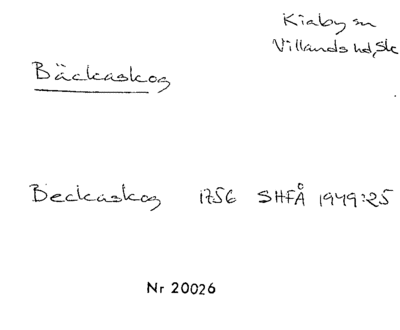 Kiaby sn
Villands hd, Sk
Bäckaskog
Beckaskog 1756 SHFÅ 1949:25
Nr 20026